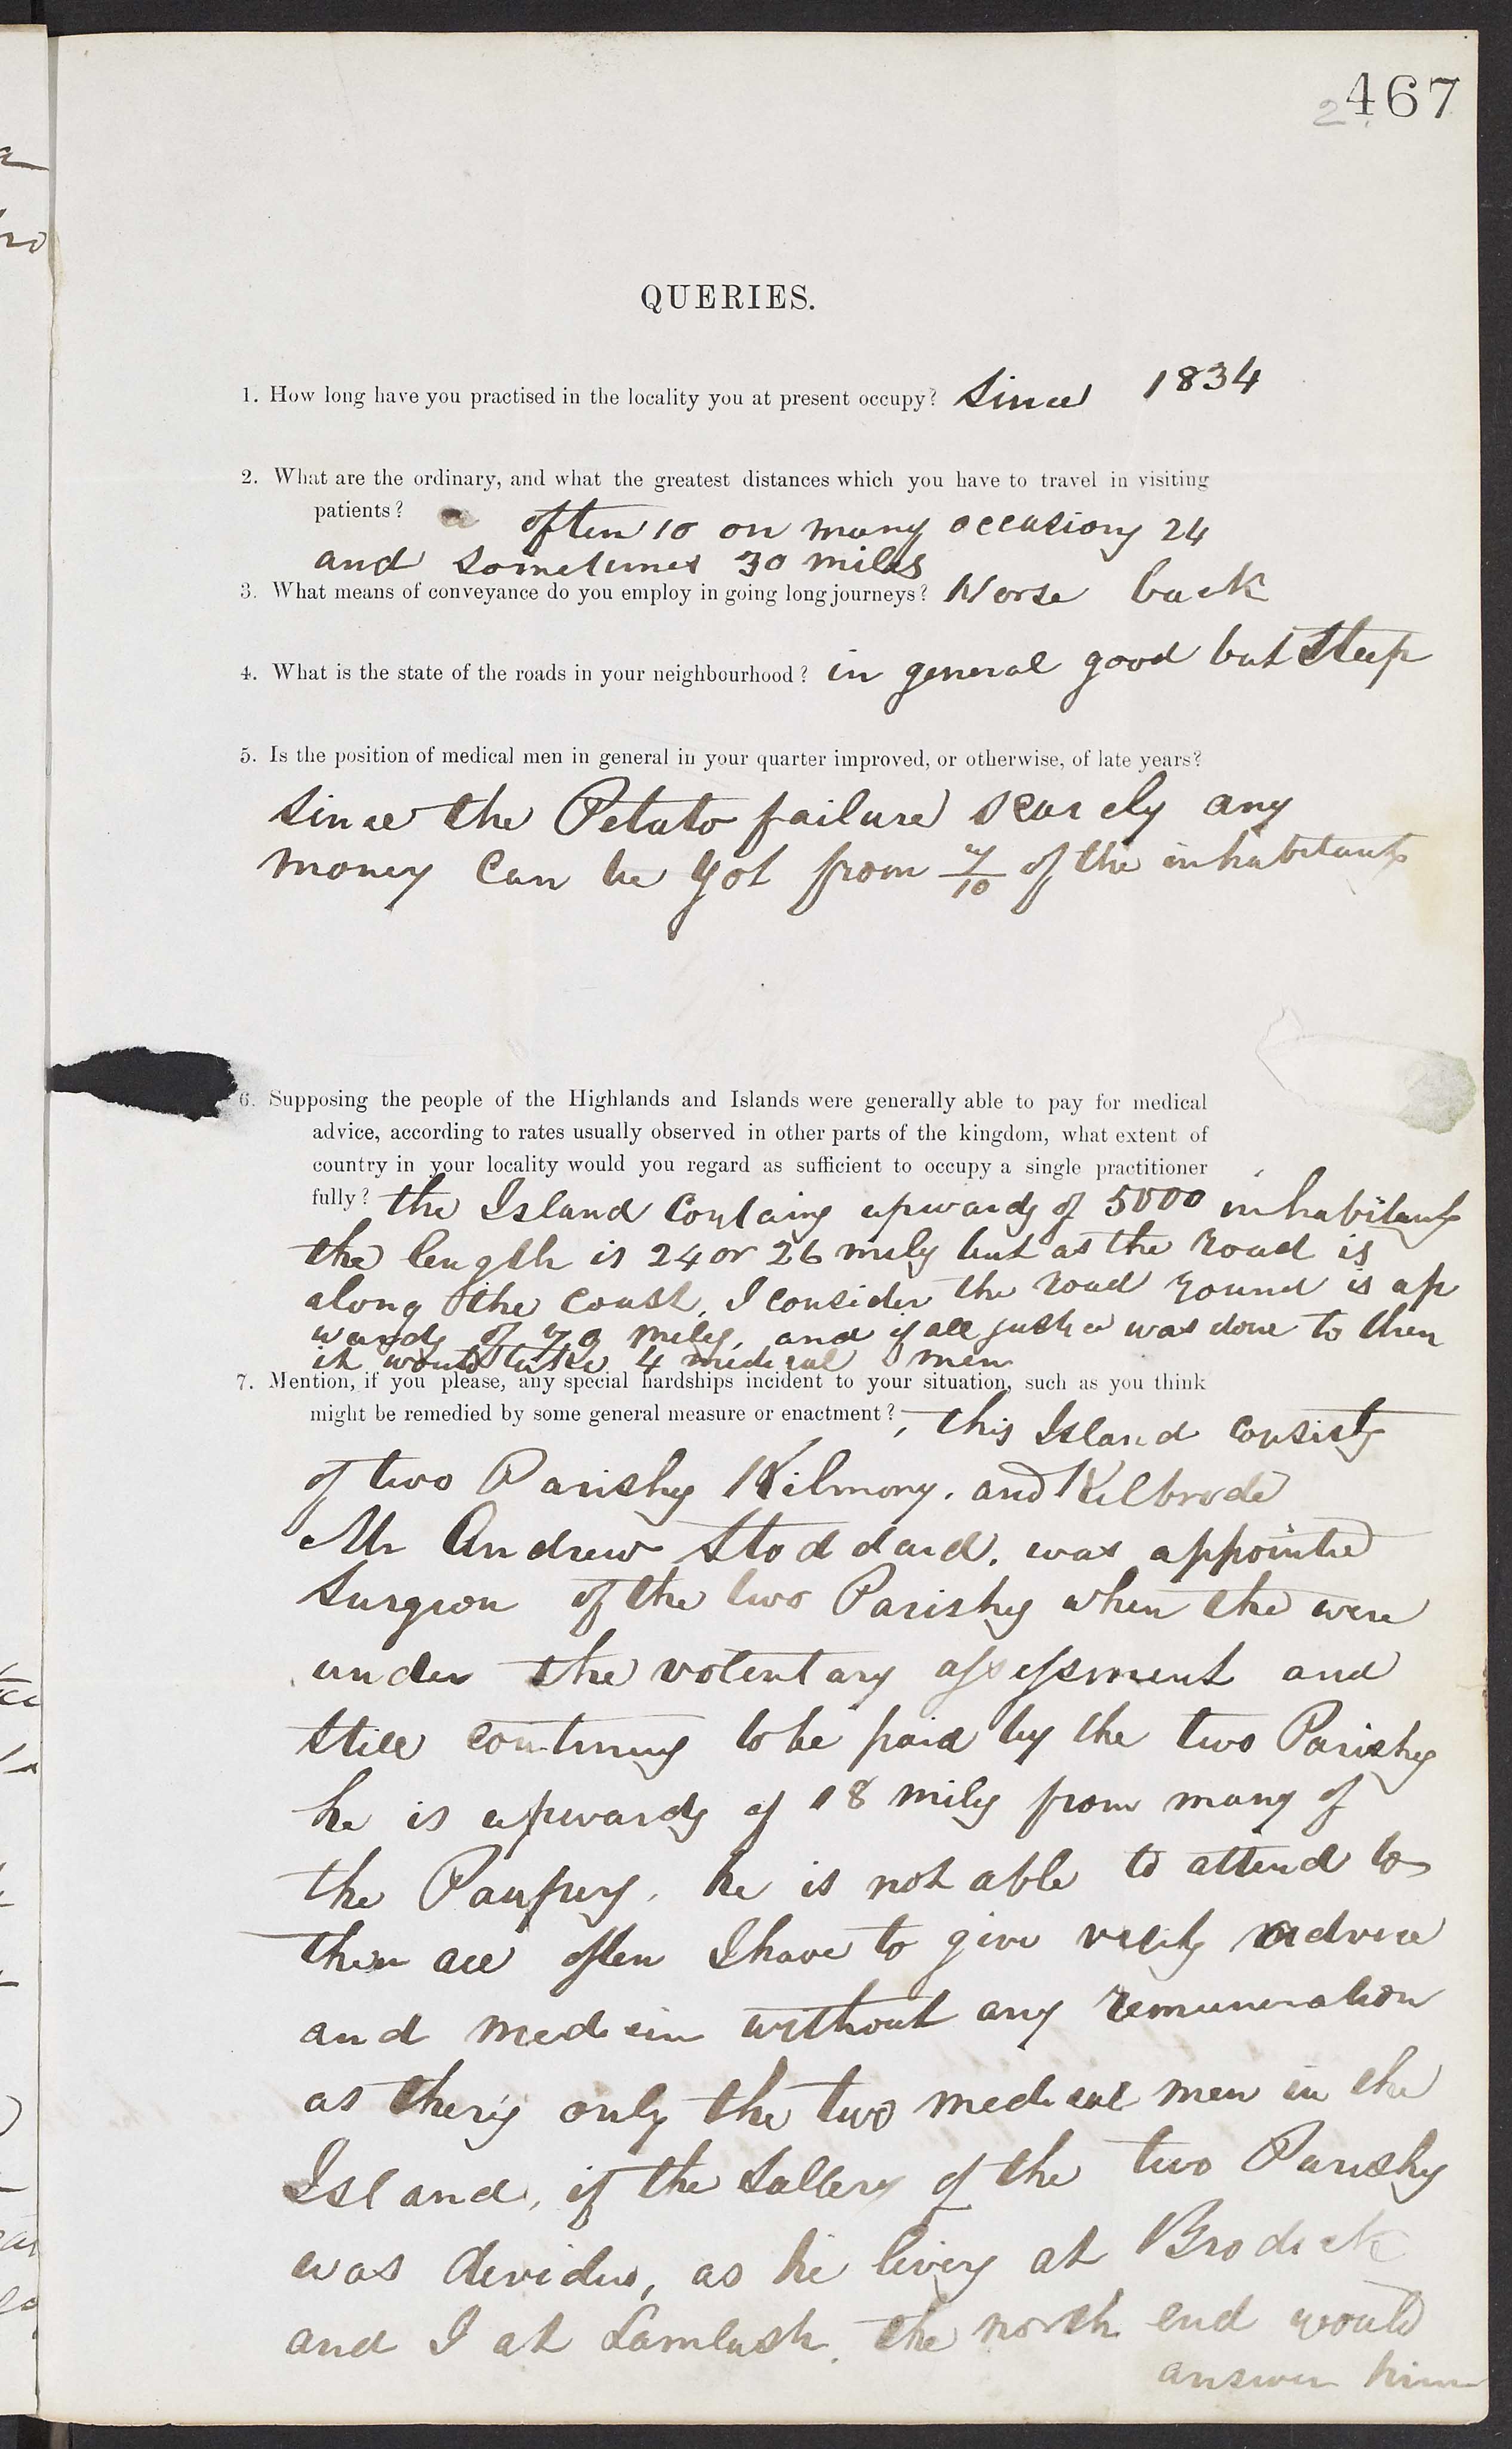 2467
QUERIES.
1. How long have you practised in the locality you at present occupy? Since 1834
2. What are the ordinary, and what the greatest distances which you have to travel in visiting
patients? often 10 on many occasions 24
and sometimes 30 miles
3. What means of conveyance do you employ in going long journeys? Horse back
4. What is the state of the roads in your neighbourhood? in general good but Steep
5. Is the position of medical men in general in your quarter improved, or otherwise, of late years?
Since the Potato failure scarcely any
money can be got from 7/10 of the inhabitants
6. Supposing the people of the Highlands and Islands were generally able to pay for medical
advice, according to rates usually observed in other parts of the kingdom, what extent of
country in your locality would you regard as sufficient to occupy a single practitioner
fully? the Island Contains upwards of 5000 inhabitants
the length is 24 or 26 miles but as the road is
along the coast, I consider the road round is up
wards of 70 miles, and if all justice was done to them
it would take 4 medical men
7. Mention, if you please, any special hardships incident to your situation, such as you think
might be remedied by some general measure or enactment?, this Island consists
of two Parishes Kilmory. and Kilbrode
Mr Andrew Stoddard. was appointed
Surgeon of the two Parishes when the were
under the volentary assessment and
Still continues to be paid by the two Parishes
he is upwards of 18 miles from many of
the Paupers. he is not able to attend to
them all often I have to give visits advice
and medicin without any remuneration
as ther's only the two medical men in the
Island, if the Sallery of the two Parishes
was devided, as he lives at Brodick
and I at Lamlash. the north end would
answer him